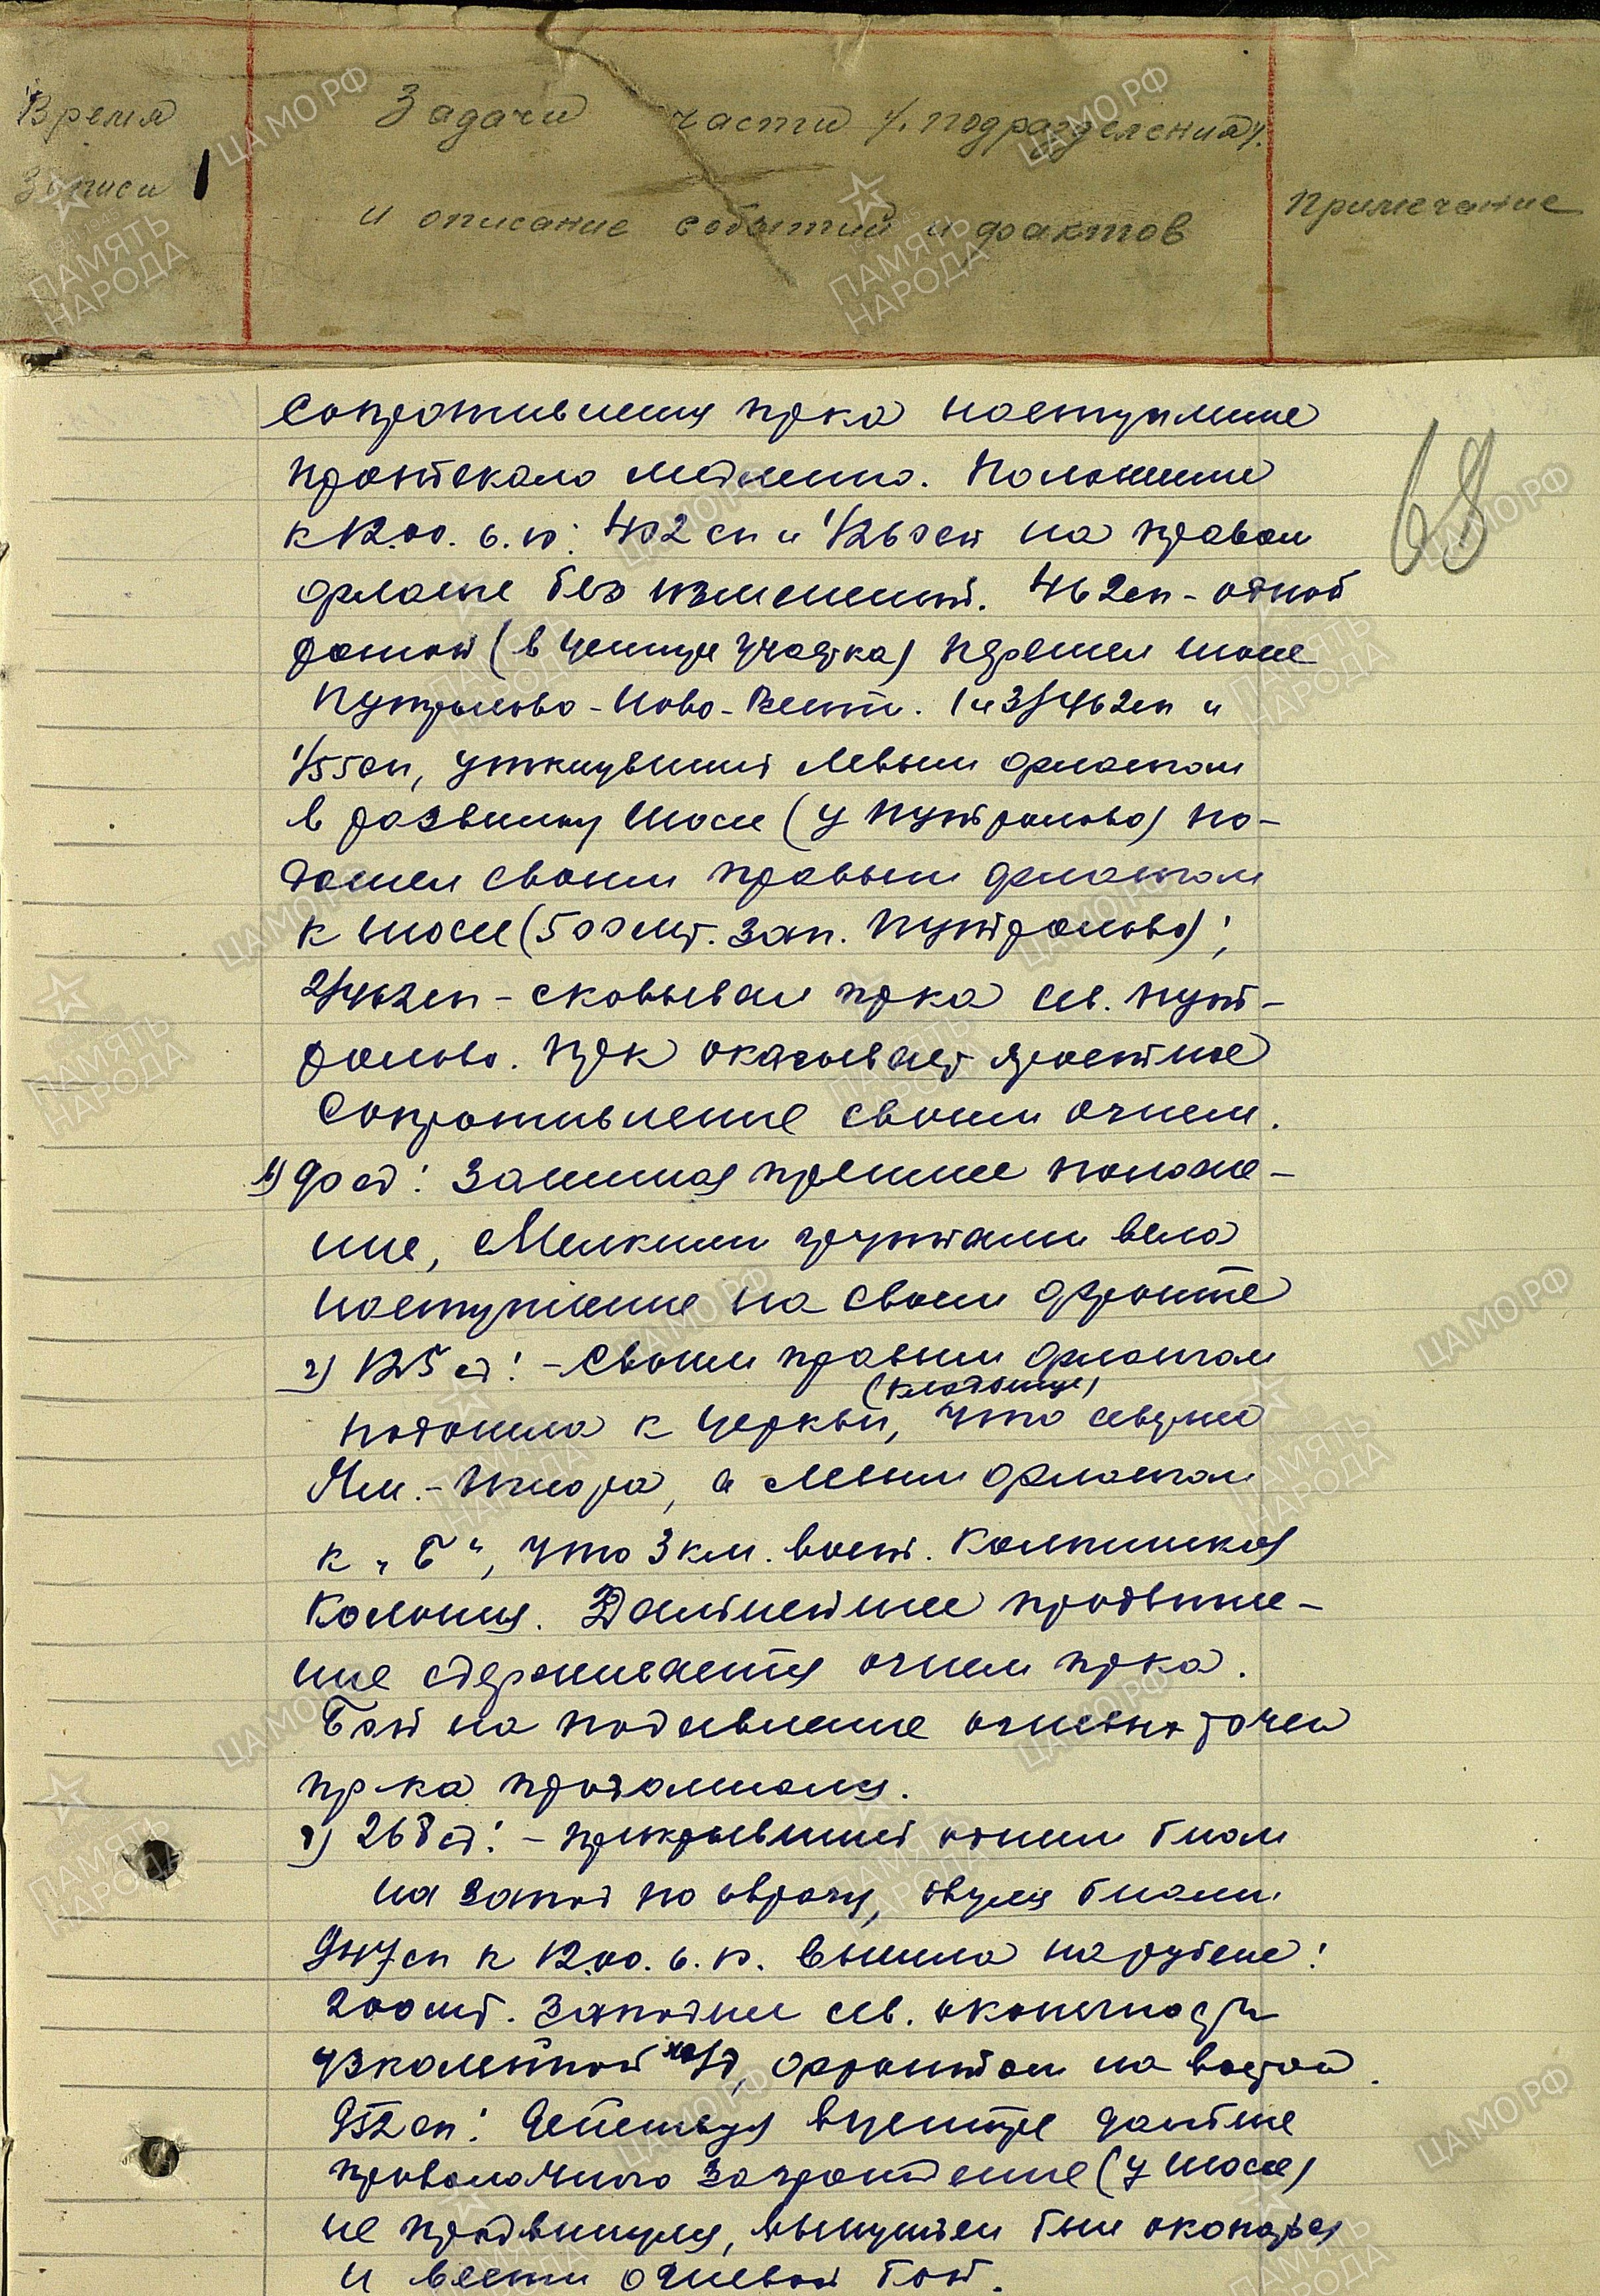 Время
Записи
Задачи части /подразделения/
и описание событий и фактов
Примечание
68
сопротивления пр-ка наступление
протекало медленно. Положение
к 12.00. 6.10: 402 сп и 1/260 сп на правом
фланге без изменений. 462сп - одной
ротой (в центре участка) перешел шоссе
Путролово - Ново-Лент. 1 и 3/462сп и
1/55сп, уткнувшись левым флангом
в развилку шоссе (у Путролово) по-
дошел своим правым флангом
к шоссе (500мт. зап. Путролово);
2/462сп - сковывал пр-ка сев. Пут-
ролово. Пр-к оказывает яростное
сопротивление своим огнем.
90 сд: Занимая прежнее положе-
ние, мелкими группами вела
наступление на своем фронте
2) 125 сд: - Своим правым флангом
(кладбище)
подошла к церкви, что севернее
Ям.-Ижора, а левым флангом
к „Б“, что 3 км. вост. Колпинская
Колония. Дальнейшее продвиже-
ние сдерживается огнем пр-ка.
Бой на подавление огневых точек
пр-ка продолжался.
268 сд: - прикрывшись одним б-ном
на запад по оврагу, двумя б-нами
947сп к 12.00. 6.10. вышла на рубеже:
200мт. западнее сев. оконечности
узколейной ж/д, фронтом на восток.
952сп: Действуя в центре далее
проволочного заграждения (у шоссе)
не продвинулся, вынужден был окопаться
и вести огневой бой.